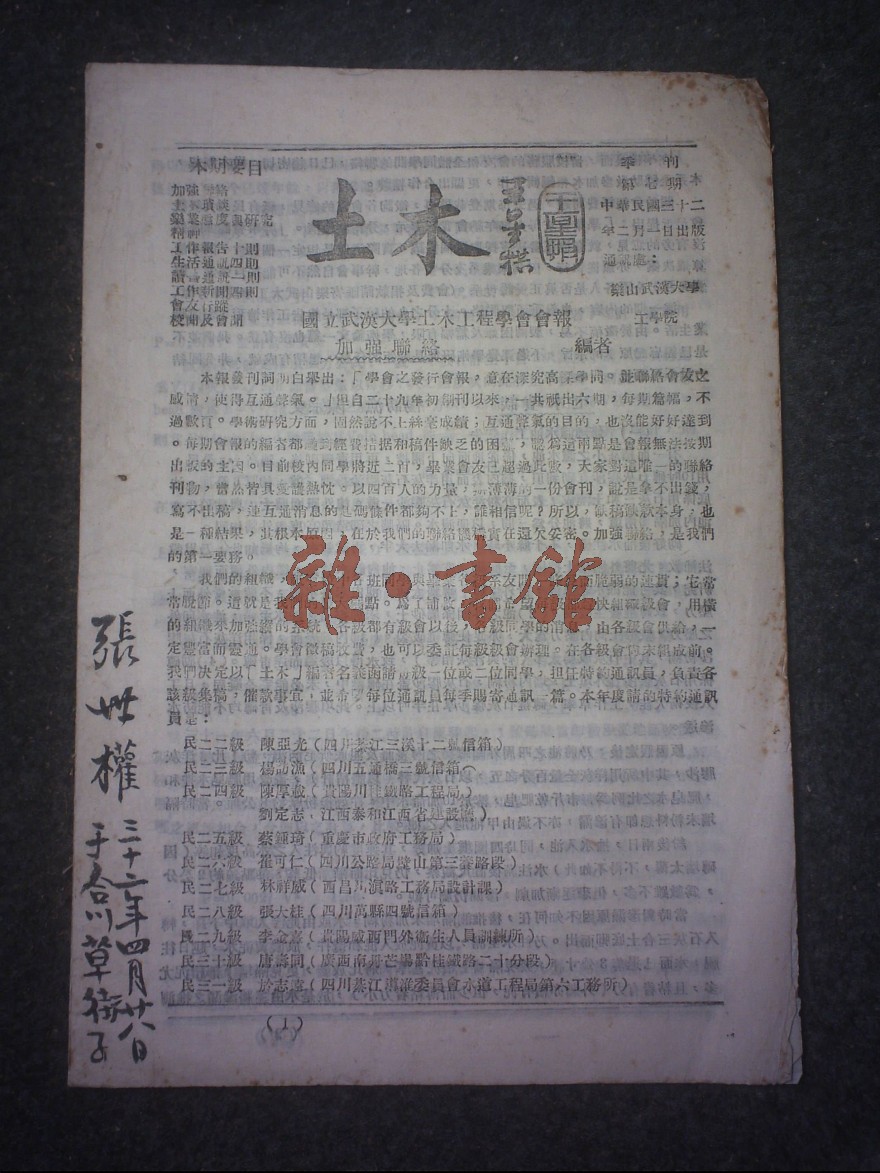 季刊
第七期
中華民國三十二
年二月一日出版
通訊處：
樂山武漢大學
工學院
土木
王星拱
本期要目
加強聯絡
國立武漢大學土木工程學會會報
加強聯絡
編者
本報發刊詞明白舉出：「學會之發行會報，意在深究高深學問。並聯絡會友之
感情，使得互通聲氣。」但自二十九年初創刊以來，一共祇出六期，每期篇幅，不
過數頁。學術研究方面，固然說不上絲毫成績；互通聲氣的目的，也沒能好好達到
。每期會報的編者都遭到經費拮据和稿件缺乏的困難，認為這兩點是會報無法按期
出版的主因。目前校內同學將近二百，畢業會友已超過此數，大家對這唯一的聯絡
刊物，當然皆具愛護熱忱。以四百人的力量，無薄薄的一份會刊，說是拿不出錢，
寫不出稿，並互通消息的起碼條件都夠不上，誰相信呢？所以，缺稿缺款本身，也
是一種結果，其根本原因，在於我們的聯絡機構實在還欠妥密。加強聯絡，是我們
的第一要務。
我們的組織，
常脫節。這就是我
的組織來加強縱的系統。各級都有級會以後，各級同學的消息，由各級會供給，一
定豐富而靈通。學會徵稿收費，也可以委託每級級會辦理。在各級會傳未組成前。
我們決定以「土木」編者名義函請每級一位或二位同學，担任特約通訊員，負責各
該級集稿，催款事宜，並希望每位通訊員每季期寄通訊一篇。本年度請的特約通訊
員是：
民二二級 陳亞光（四川綦江三溪十二號信箱）
民二三級 楊訪漁（四川五通橋三號信箱）
民二四級 陳厚載（貴陽川桂鐵路工程局）
劉定志（江西泰和江西省建設廳）
民二五級 蔡鍾琦（重慶市政府工務局）
民二六級 崔可仁（四川公路局璧山第三養路段）
民二七級 林祥威（西昌川滇路工務局設計課）
民二八級 張大柱（四川萬縣四號信箱）
民二九級 李金嘉（貴陽威西門外衛生人員訓練所）
民三十級 唐壽同（廣西南丹芒場黔桂鐵路二十分段）
民三一級 於志（四川綦江導淮委員會水道工程局第六工務所）
(1)
張世權
三十二年四月廿八日
于合川草街子
雜·書館